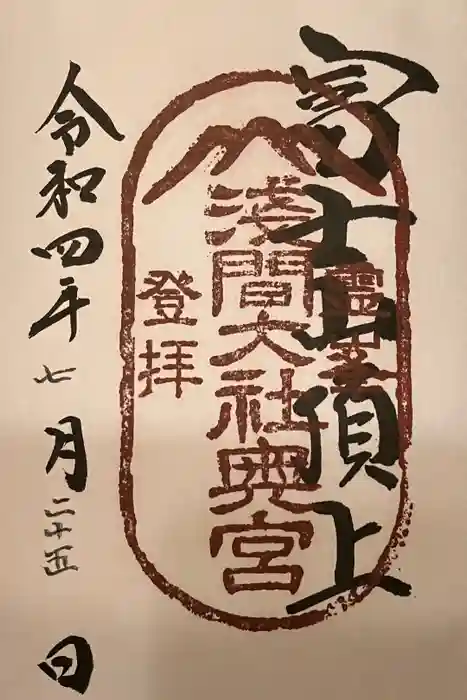 富士山頂上
浅間大社奥宮
登拝
令和四年七月二十五日